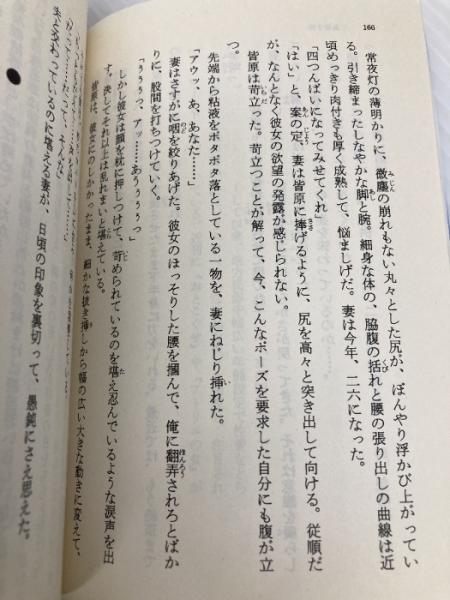 160
常夜灯の薄明かりに、微塵の崩れもない丸々とした尻が、ぼんやり浮かび上がってい
る。引き締まったしなやかな脚と腕。細身な体の、脇腹の括れと腰の張り出しの曲線は近
頃めっきり肉付きも厚く成熟して、悩ましげだ。妻は今年、二六になった。
「四つんばいになってみせてくれ」
「はい」と、案の定、妻は皆原に捧げるように、尻を高々と突き出して向ける。従順だ
が、なんとなく彼女の欲望の発露が感じられない。
皆原は苛立った。苛立つことが解って、今、こんなポーズを要求した自分にも腹が立
つ。
先端から粘液をボタボタ落としている一物を、妻にねじり挿れた。
「アウッ、あ、あなた……」
妻はさすがに咽を絞りあげた。彼女のほっそりした腰を摑んで、俺に翻弄されろとばか
りに、股間を打ちつけていく。
「ぅぅぅっ、アッ……あぅぅぅっ」
しかし彼女は顔を枕に押しつけて、苛められているのを堪え忍んでいるような涙声を出
す。決してそれ以上は乱れまいと堪えている。
皆原は、彼女にのしかかったまま、細かな抜き挿しから幅の広い大きな動きに変えて、
夫と交わっているのに堪える妻が、日頃の印象を裏切って、愚鈍にさえ思えた。